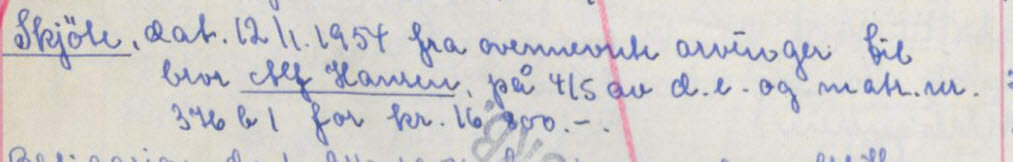 Skjöte, dat. 12/1. 1954 fra ovennevnte arvinger til
bror Alf Hansen, på 4/5 av d.e. og matr.nr.
376 b 1 for kr. 16 800.-.